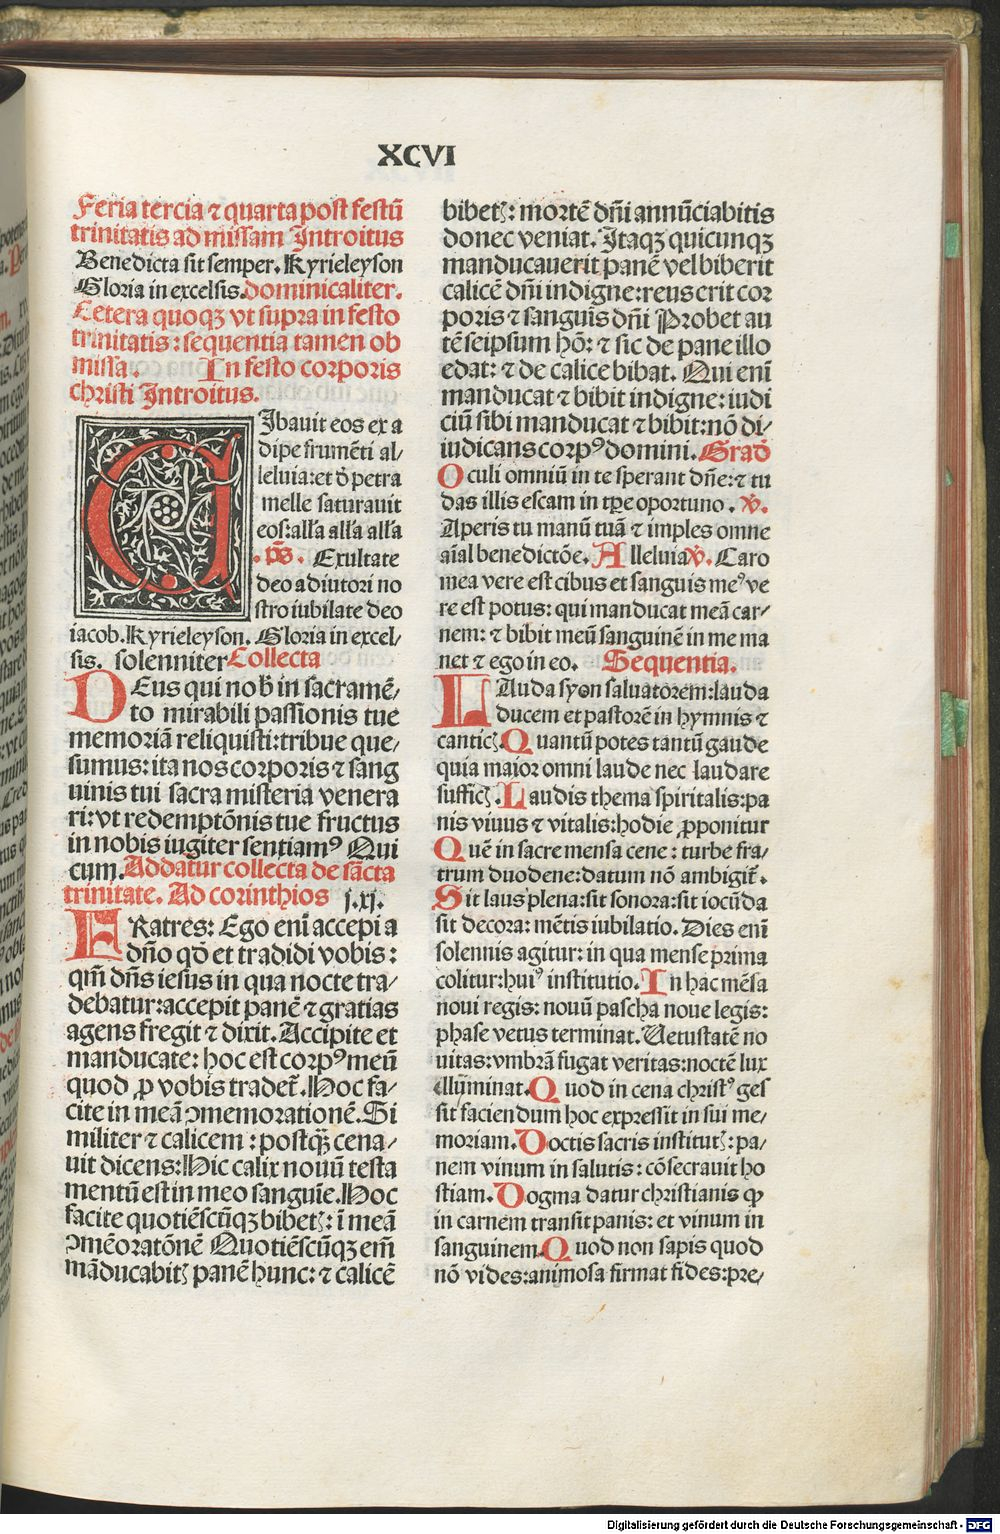 XCVI
Feria tercia ⁊ quarta post festū
trinitatis ad missam Introitus
Benedicta sit semper. Kyrieleyson
Gloria in excelsis. dominicaliter.
Cetera quoqꝫ vt supra in festo
trinitatis: sequentia tamen ob
missa. In festo corporis
christi Introitus.
CIbauit eos ex a
dipe frumēti al⸗
leluia: et d̄ petra
melle saturauit
eos: alľa alľa alľa
.p̄s. Exultate
deo adiutori no
stro iubilate deo
iacob. Kyrieleyson. Gloria in excel⸗
sis. solenniter Collecta
DEus qui nob̄ in sacramē⸗
to mirabili passionis tue
memoriā reliquisti: tribue que⸗
sumus: ita nos corporis ⁊ sang
uinis tui sacra misteria venera
ri: vt redemptōnis tue fructus
in nobis iugiter sentiamꝰ Qui
cum. Addatur collecta de sācta
trinitate. Ad corinthios j.xj.
FRatres: Ego enī accepi a
dn̄o qd̄ et tradidi vobis:
qm̄ dn̄s iesus in qua nocte tra⸗
debatur: accepit panē ⁊ gratias
agens fregit ⁊ dixit. Accipite et
manducate: hoc est corpꝰ meū
quod ꝓ vobis tradet̄. Hoc fa⸗
cite in meā ꝯmemorationē. Si
militer ⁊ calicem: postq̄ꝫ cena⸗
uit dicens: Hic calix nouū testa
mentū est in meo sanguīe. Hoc
facite quotiēscūqꝫ bibetꝭ: ī meā
ꝯmēoratōnē Quotiēscūqꝫ em̄
māducabitꝭ panē hunc: ⁊ calicē
bibetꝭ: mortē dn̄i annūciabitis
donec veniat. Itaqꝫ quicunqꝫ
manducauerit panē vel biberit
calicē dn̄i indigne: reus erit cor
poris ⁊ sanguīs dn̄i Probet au
tē seipsum hō: ⁊ sic de pane illo
edat: ⁊ de calice bibat. Qui enī
manducat ⁊ bibit indigne: iudi
ciū sibi manducat ⁊ bibit: nō di⸗
iudicans corpꝰ domini. Grad̄
Oculi omniū in te sperant dn̄e: ⁊ tu
das illis escam in tꝑe oportuno. v̄.
Aperis tu manū tuā ⁊ imples omne
aīal benedictōe. Alleluia v̄. Caro
mea vere est cibus et sanguis meꝰ ve
re est potus: qui manducat meā car⸗
nem: ⁊ bibit meū sanguinē in me ma
net ⁊ ego in eo. Sequentia.
LAuda syon saluatorem: lauda
ducem et pastorē in hymnis ⁊
canticꝭ. Quantū potes tantū gaude
quia maior omni laude nec laudare
sufficꝭ. Laudis thema spiritalis: pa
nis viuus ⁊ vitalis: hodie ꝓponitur
Quē in sacre mensa cene: turbe fra⸗
trum duodene: datum nō ambigit̄.
Sit laus plena: sit sonora: sit iocūda
sit decora: mētis iubilatio. Dies enī
solennis agitur: in qua mense prima
colitur: huiꝰ institutio. In hac mēsa
noui regis: nouū pascha noue legis:
phase vetus terminat. Uetustatē no
uitas: vmbrā fugat veritas: noctē lux
illūminat. Quod in cena christꝰ ges
sit faciendum hoc expressit in sui me⸗
moriam. Doctis sacris institutꝭ: pa⸗
nem vinum in salutis: cōsecrauit ho
stiam. Dogma datur christianis ꝙ
in carnem transit panis: et vinum in
sanguinem. Quod non sapis quod
nō vides: animosa firmat fides: pre⸗
Digitalisierung gefördert durch die Deutsche Forschungsgemeinschaft - DFG